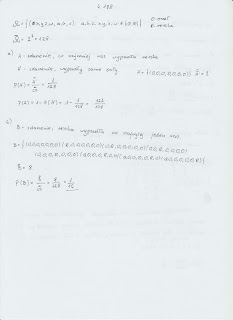 Z. 198
Ω = {(x,y,z,w,a,b,c): a,b,c,x,y,z,w ∈ {O,R}} O - orzeł
R - reszka
Ω̿ = 2⁷ = 128
a) A - zdarzenie, co najmniej raz wypadła reszka
A' - zdarzenie, wypadły same orły A' = {(O,O,O,O,O,O,O)} = 1
P(A') = 1/128
P(A) = 1 - P(A') = 1 - 1/128 = 127/128
b) B - zdarzenie, reszka wypadła co najwyżej jeden raz
B = {(O,O,O,O,O,O,O) (R,O,O,O,O,O,O) (O,R,O,O,O,O,O) (O,O,R,O,O,O,O)
(O,O,O,R,O,O,O) (O,O,O,O,R,O,O) (O,O,O,O,O,R,O) (O,O,O,O,O,O,R)}
B̿ = 8
P(B) = 8/128 = 1/16